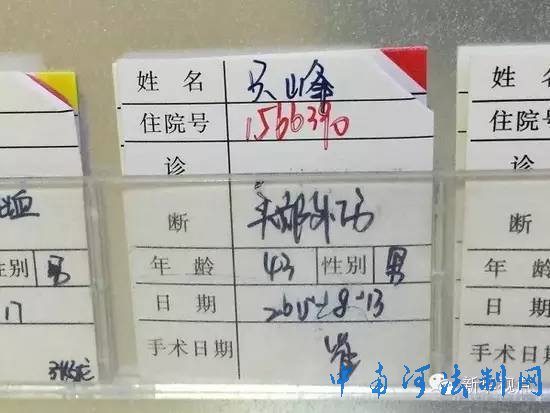 姓 名 吴山峰
住院号 1566390
诊
断 头部外伤
年 龄 43 性别 男
日 期 2015-8-13
手术日期 崔
性别 男
17
姓 名
住院号
诊
断
年 龄
日 期
手术日期
中南河法制网